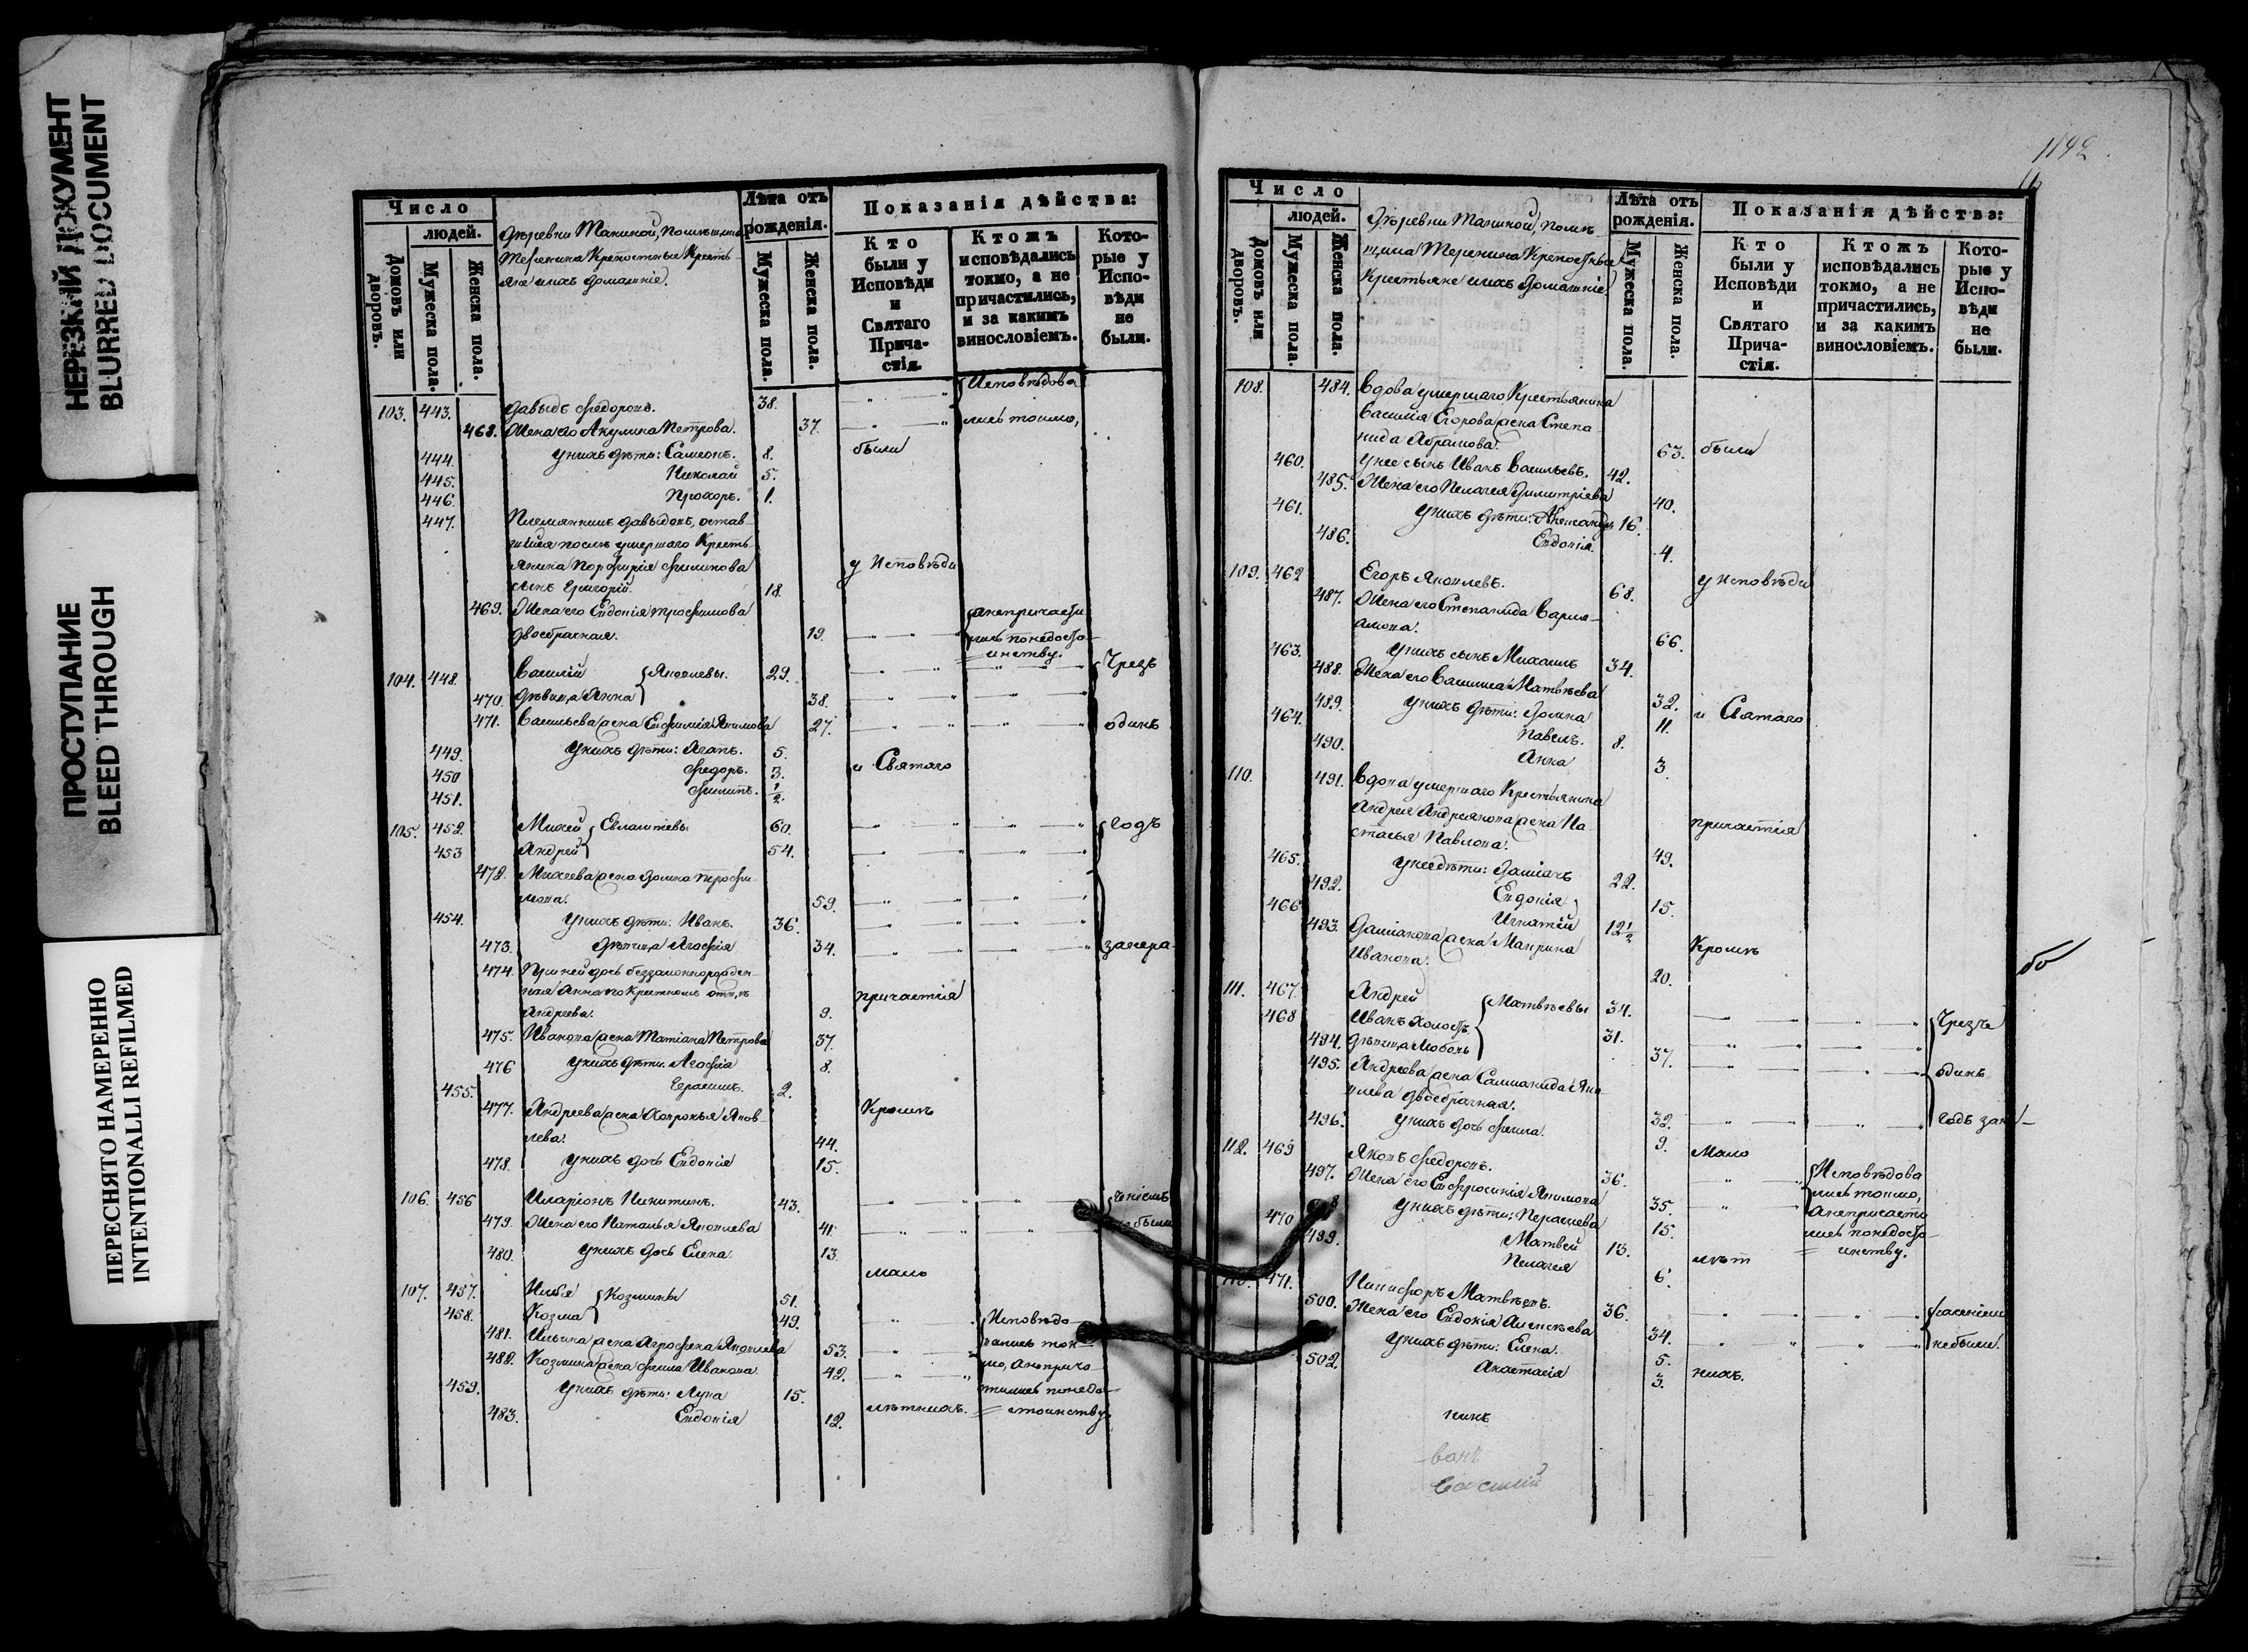 НЕРЕЗКИЙ ДОКУМЕНТ
BLURRED DOCUMENT
ПРОСТУПАНИЕ
BLEED THROUGH
ПЕРЕСНЯТО НАМЕРЕННО
INTENTIONALLI REFILMED
Число
людей.
Домовъ или дворовъ.
Мужеска пола.
Женска пола.
Лѣта отъ рожденія.
Мужеска пола.
Женска пола.
Показанія дѣйства:
Кто были у Исповѣди и Святаго Прича-стія.
Ктожъ исповѣдались токмо, а не причастились, и за какимъ винословіемъ.
Кото-рые у Испо-вѣди не были.
103. 443. Давыдъ Федоровъ. 38. Исповѣдова
468. Жена его Акулина Петрова. 37. лись токмо,
444. У нихъ дѣти: Самсонъ. 8. были
445. Николай 5.
446. Прохоръ. 1.
447. Племянникъ Давыдовъ, остав-
шійся послѣ умершаго Кресть-
янина Порфирія Филипова у Исповѣди
сынъ Григорій. 18.
469. Жена его Евдокія Трофимова а непричасти
двоебрачная. 19. лись по недосто-
инству.
104. 448. Василій Яковлевы. 29. Чрезъ
470. дѣвица Анна 38.
471. Васильева жена Евфимія Якимова 27. одинъ
449. У нихъ дѣти: Агапъ. 5.
450 Федоръ. 3. и Святаго
451. Филипъ. 1/2.
105. 452. Михей Евлампіевы 60. годъ
453 Андрей 54.
472. Михеева жена Домна Трофи-
мова. 59.
454. У нихъ дѣти: Иванъ. 36.
473. дѣвица Агафія 34. за нера-
474. При ней дочь беззаконнорожден-
ная Анна по крестномъ отцѣ причастія
Андреева. 9.
475. Иванова жена Татіана Петрова 37.
476 У нихъ дѣти. Агафія 8.
455. Герасимъ. 2.
477. Андреева жена Хавронья Яков- Кромѣ
лева. 44.
478. У нихъ дочь Евдокія 15.
106. 456 Иларіонъ Никитинъ. 43. дѣніемъ
479. Жена его Наталья Яковлева 41. не были
480. У нихъ дочь Елена. 13.
мало
107. 457. Илья Козмины 51.
458. Козма 49. Исповѣдо
481. Ильина жена Агрофена Яковлева 53. вались ток
482. Козмина жена Фекла Иванова. 42. мо, а неприча
459. У нихъ дѣти: Лука 15. тились по недо-
483. Евдокія 12. лѣтнихъ. стоинству.
1142
Число
людей.
Домовъ или дворовъ.
Мужеска пола.
Женска пола.
Деревни Макиной, помѣ-
Крестьяне и ихъ домашніе
Лѣта отъ рожденія.
Мужеска пола.
Женска пола.
Показанія дѣйства:
Кто были у Исповѣди и Святаго Прича-стія.
Ктожъ исповѣдались токмо, а не причастились, и за какимъ винословіемъ.
Кото-рые у Испо-вѣди не были.
108. 484. Вдова умершаго Крестьянина
Василія Егорова жена Степа-
нида Абрамова. 63. были
460. У нее сынъ Иванъ Васильевъ. 42.
485. Жена его Пелагея Димитріева 40.
461. У нихъ дѣти: Александръ 16.
486. Евдокія. 4.
109. 462 Егоръ Яковлевъ. 68. у Исповѣди
487. Жена его Степанида Варла-
мова. 66.
463. У нихъ сынъ Михаилъ 34.
488. Жена его Василиса Матвѣева 32.
489. У нихъ дѣти: Домна 11. и Святаго
464. Павелъ. 8.
490. Анна 3.
110. 491. Вдова умершаго Крестьянина
Андрея Андреянова жена На-
стасья Павлова. 49. причастія
465. У нее дѣти: Даміанъ 22.
492. Евдокія 15.
466 Игнатій 12 1/2
493. Даміанова жена Маврина
Иванова. 20. Кромѣ
111. 467. Андрей Матвѣевы 34.
468 Иванъ холостъ. 31. Чрезъ
494. дѣвица Любовь 37.
495. Андреева жена Саломанида Яко одинъ
влева двоебрачная. 32.
496. У нихъ дочь Фекла. 9. годъ за не-
112. 469 Яковъ Федоровъ. 36. мало Исповѣдова
497. Жена его Евфросинія Якимова 35. лись токмо,
У нихъ дѣти: Парасковья 15. а непричасти
470 Матвей 13. лись по недосто-
499. Пелагея 6. лѣт инству.
471. Никифоръ Матвѣевъ. 36.
500. Жена его Евдокія Алексѣева 34. раденіемъ
У нихъ дѣти: Елена. 5. не были.
502. Анастасія 3. нихъ.
Василій